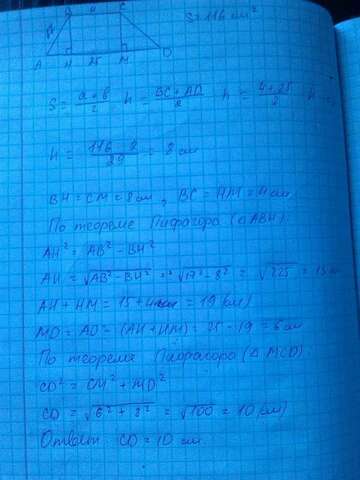 B 4 C S=116 см²
A H 25 M D
S = a+b/2 · h = BC+AD/2 · h = 4+25/2 · h
h = 116·2/29 = 8 см
BH = CM = 8 см, BC = HM = 4 см
По теореме Пифагора (△ABH)
AH² = AB² - BH²
AH = √AB² - BH² = √17² - 8² = √225 = 15 см
AH + HM = 15 + 4 = 19 (см)
MD = AD - (AH + HM) = 25 - 19 = 6 см
По теореме Пифагора (△ MCD)
CD² = CM² + MD²
CD = √6² + 8² = √100 = 10 (см)
Ответ CD = 10 см.